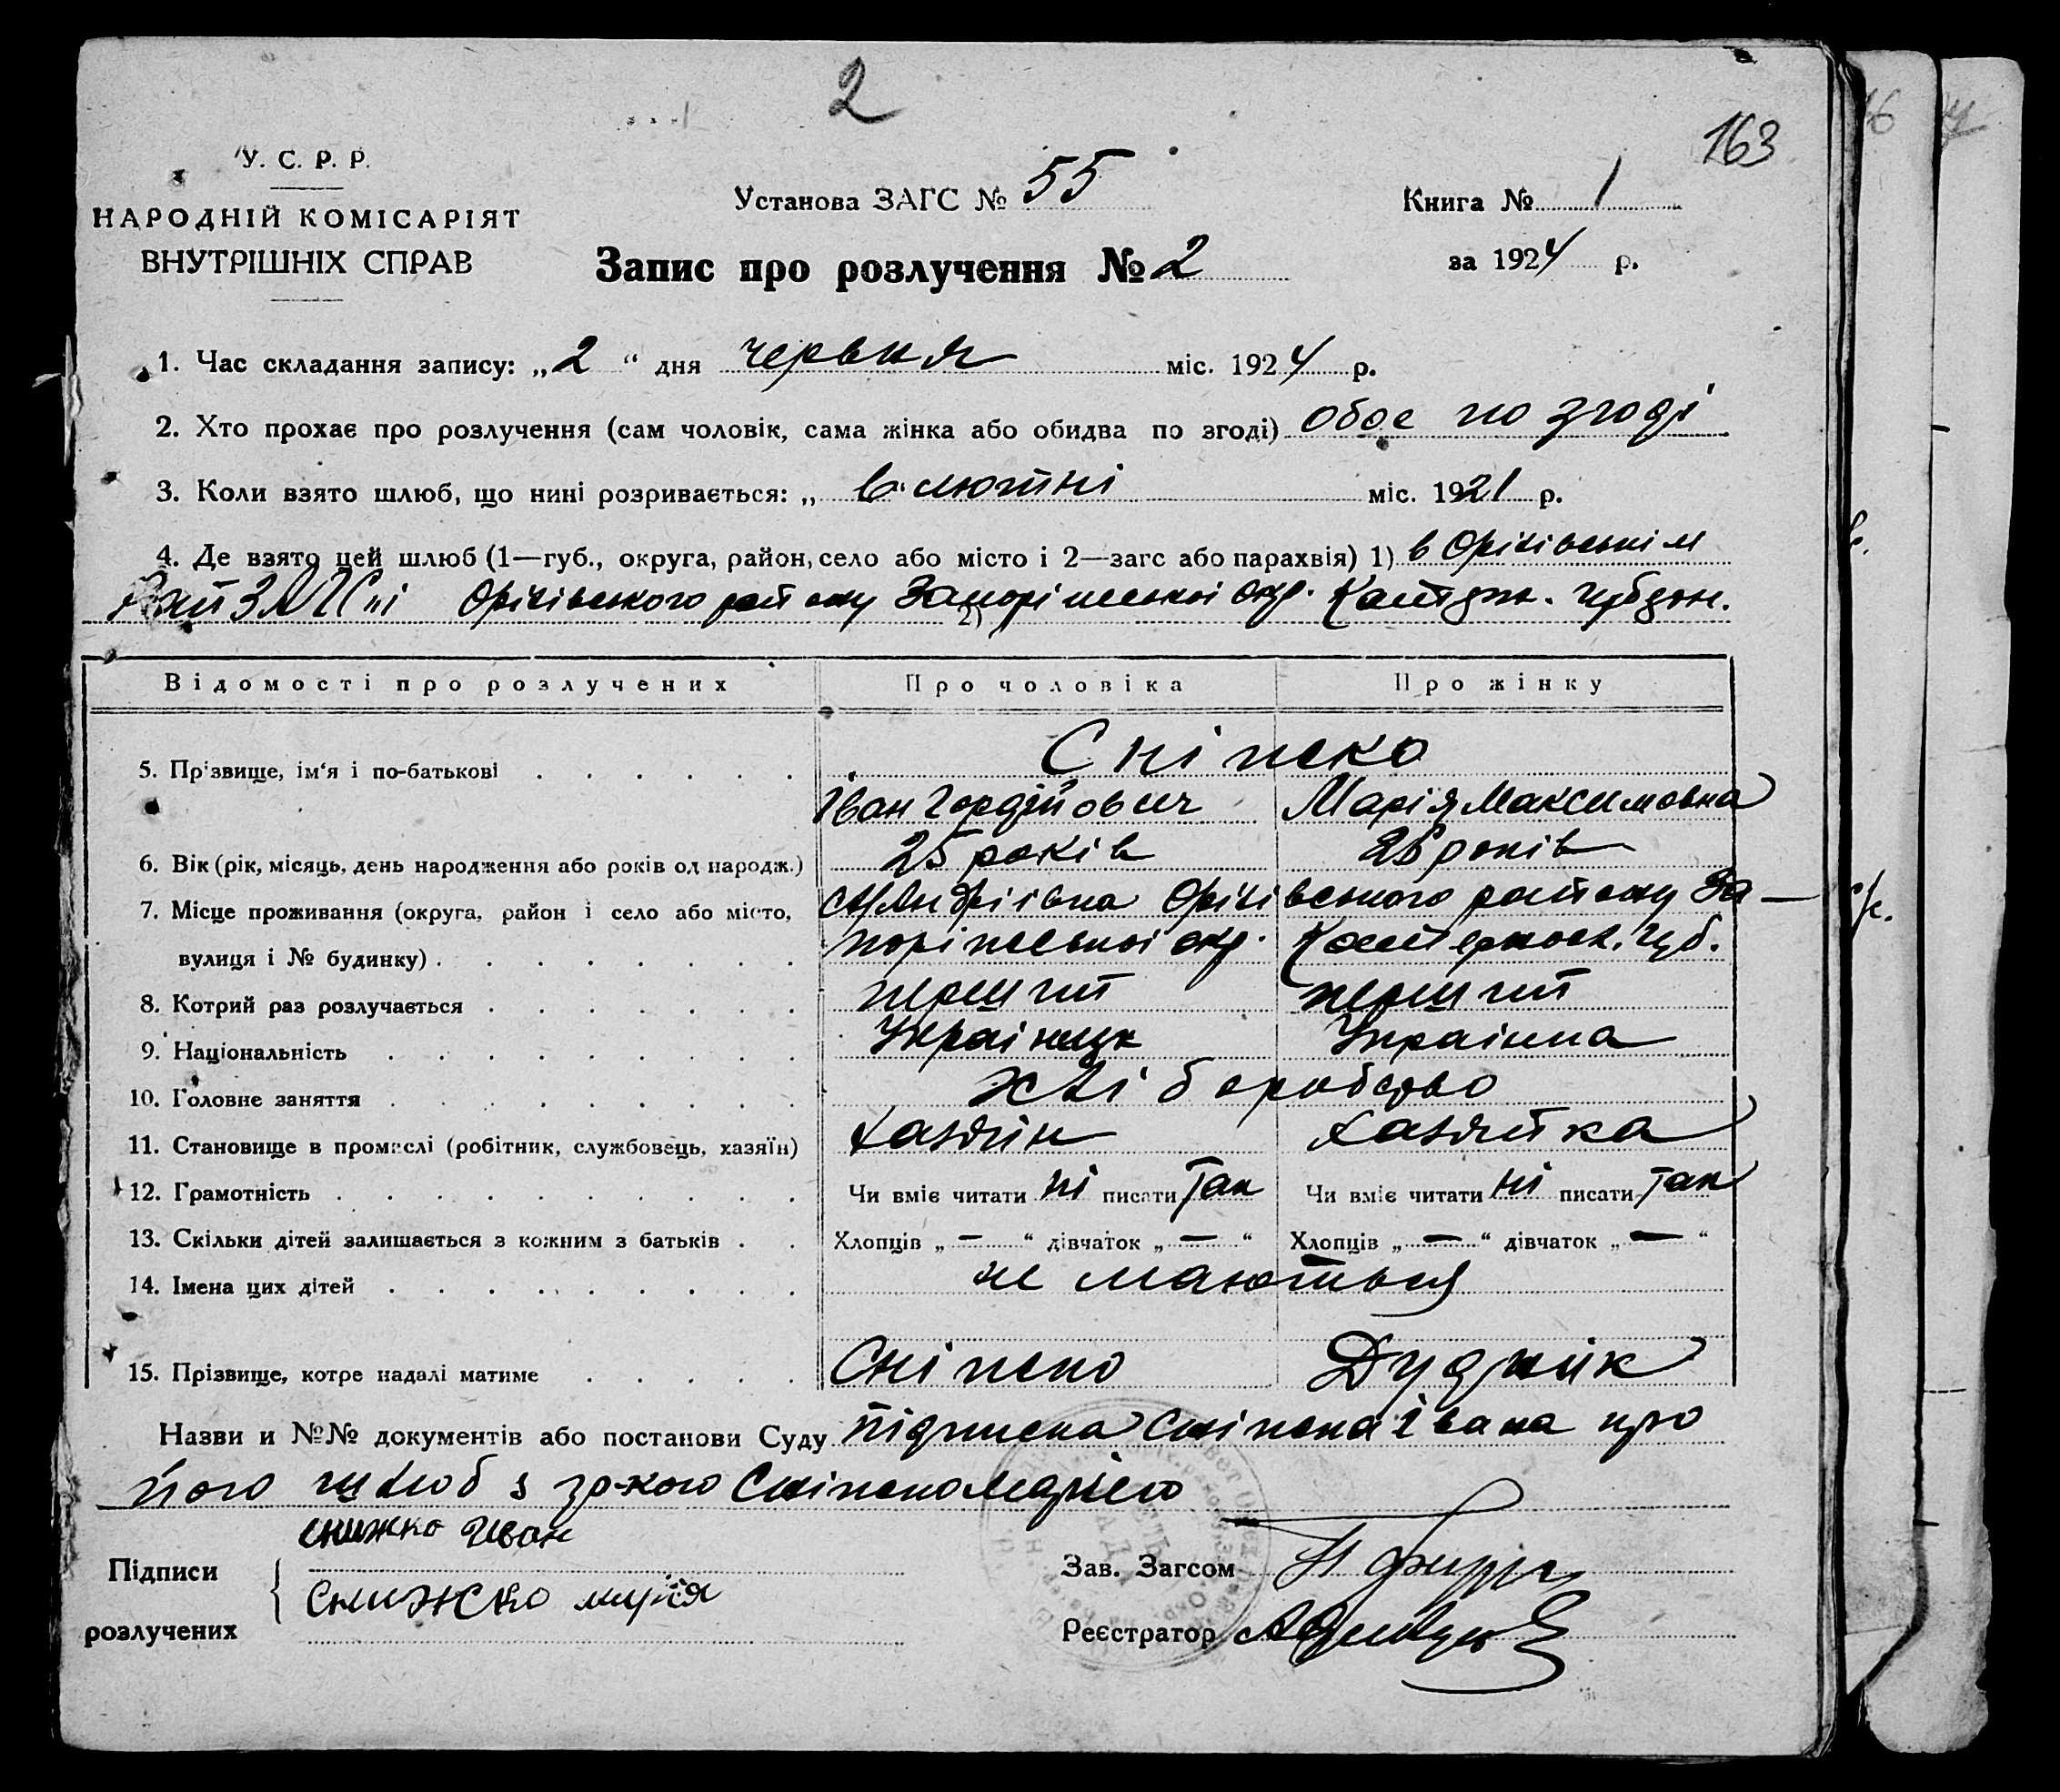 2
163
У. С. Р. Р.
НАРОДНІЙ КОМІСАРІЯТ
ВНУТРІШНІХ СПРАВ
Установа ЗАГС № 55
Книга № 1
за 1924 р.
Запис про розлучення № 2
1. Час складання запису: „2“ дня червня міс. 1924 р.
2. Хто прохає про розлучення (сам чоловік, сама жінка або обидва по згоді) обое по згоді
3. Коли взято шлюб, що нині розривається: „ в лютні міс. 1921 р.
4. Де взято цей шлюб (1—губ., округа, район, село або місто і 2—загс або парахвія) 1) в Оріхівськім
Оріхівського району Запоріжської окр. Катерин. губерн.
2)
Відомості про розлучених Про чоловіка Про жінку
5. Прізвище, ім‘я і по-батькові Сніжко
Іван Гордійович Марія Максимовна
6. Вік (рік, місяць, день народження або років од народж.) 25 років 26 років
7. Місце проживання (округа, район і село або місто, Оріхівського району За-
вулиця і № будинку) поріжської окр. Катериносл. губ.
8. Котрий раз розлучається перший перший
9. Національність Українець Українка
10. Головне заняття хліборобство
11. Становище в промислі (робітник, службовець, хазяїн) Хазяїн Хазяйка
12. Грамотність Чи вміє читати ні писати так Чи вміє читати ні писати так
13. Скільки дітей залишається з кожним з батьків Хлопців „ — “ дівчаток „ — “ Хлопців „ — “ дівчаток „ — “
14. Імена цих дітей не мається
15. Прізвище, котре надалі матиме Сніжко Дудник
Назви и №№ документів або постанови Суду Підписка Сніжка Івана про
його шлюб з гр-кою Сніжко Марією
Підписи
розлучених
снижко Иван
Снижско мария
Зав. Загсом
Реєстратор